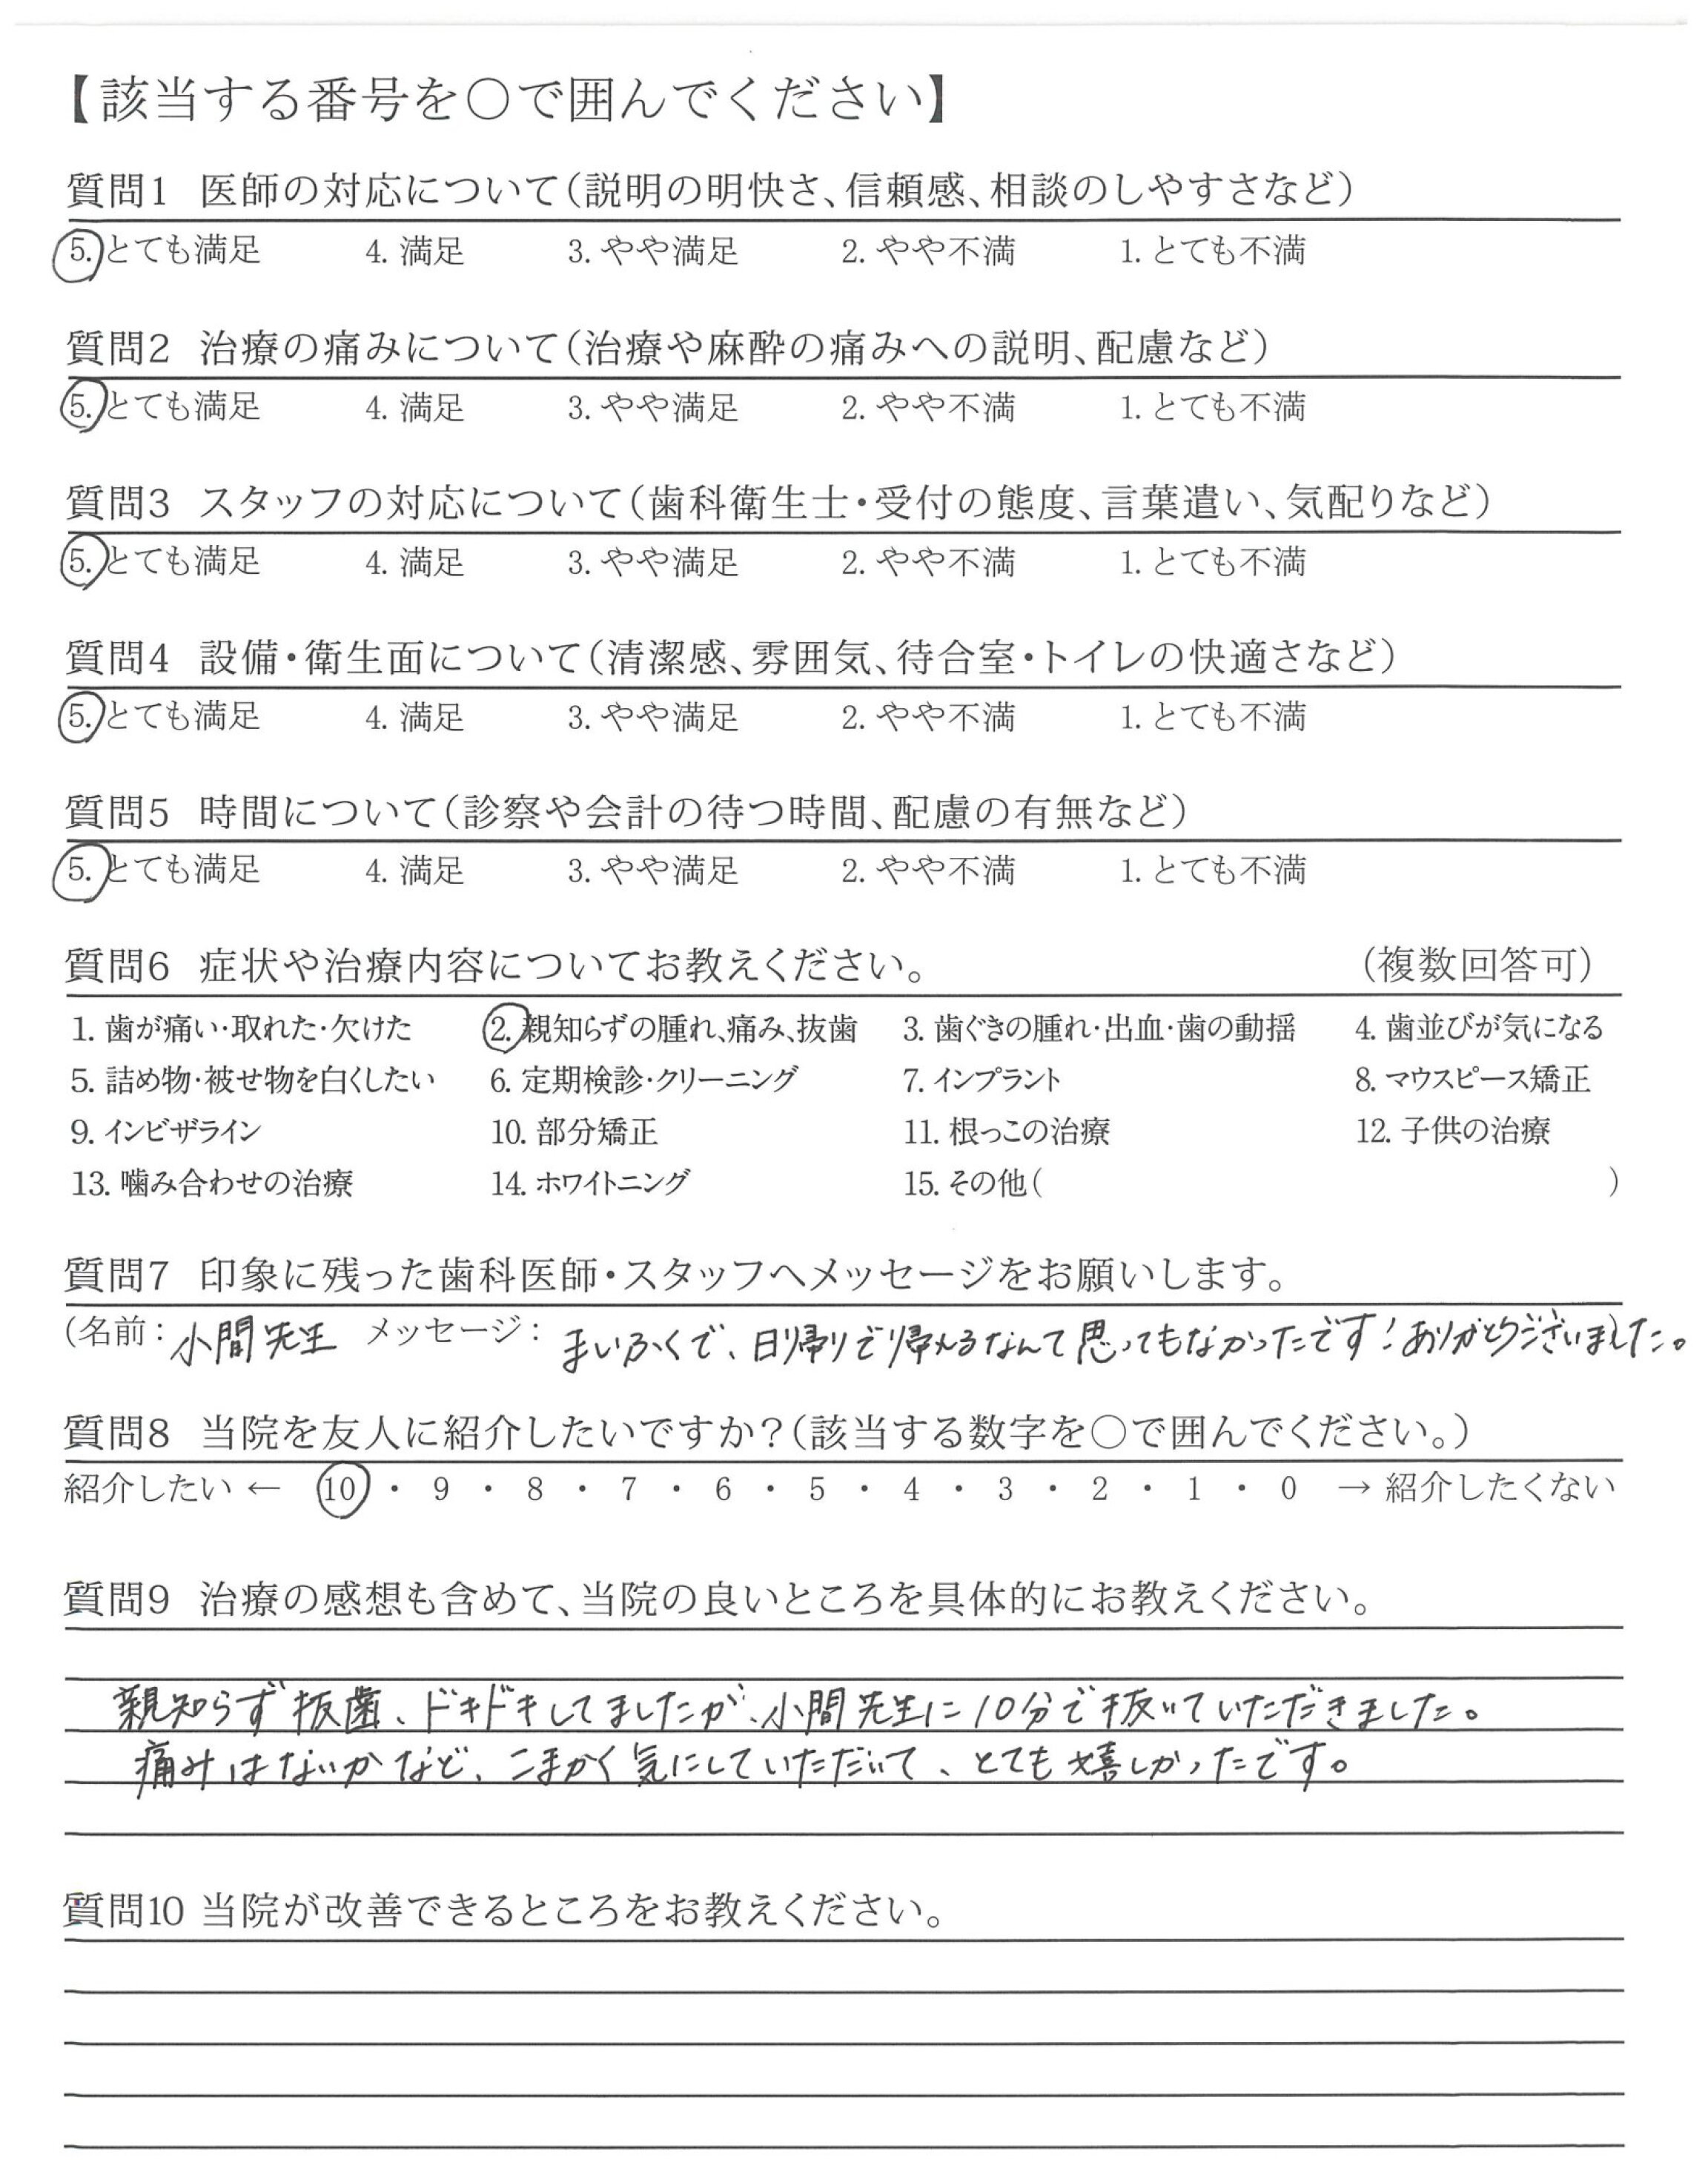 【該当する番号を○で囲んでください】
質問1 医師の対応について(説明の明快さ、信頼感、相談のしやすさなど)
5. とても満足 4. 満足 3. やや満足 2. やや不満 1. とても不満
質問2 治療の痛みについて(治療や麻酔の痛みへの説明、配慮など)
5. とても満足 4. 満足 3. やや満足 2. やや不満 1. とても不満
質問3 スタッフの対応について(歯科衛生士・受付の態度、言葉遣い、気配りなど)
5. とても満足 4. 満足 3. やや満足 2. やや不満 1. とても不満
質問4 設備・衛生面について(清潔感、雰囲気、待合室・トイレの快適さなど)
5. とても満足 4. 満足 3. やや満足 2. やや不満 1. とても不満
質問5 時間について(診察や会計の待つ時間、配慮の有無など)
5. とても満足 4. 満足 3. やや満足 2. やや不満 1. とても不満
質問6 症状や治療内容についてお教えください。 (複数回答可)
1. 歯が痛い・取れた・欠けた 2. 親知らずの腫れ、痛み、抜歯 3. 歯ぐきの腫れ・出血・歯の動揺 4. 歯並びが気になる
5. 詰め物・被せ物を白くしたい 6. 定期検診・クリーニング 7. インプラント 8. マウスピース矯正
9. インビザライン 10. 部分矯正 11. 根っこの治療 12. 子供の治療
13. 噛み合わせの治療 14. ホワイトニング 15. その他( )
質問7 印象に残った歯科医師・スタッフへメッセージをお願いします。
(名前: 小間先生 メッセージ: まいふくで、日帰りで帰えるなんて思ってもなかったです!ありがとうございました。)
質問8 当院を友人に紹介したいですか?(該当する数字を○で囲んでください。)
紹介したい ← 10 ・ 9 ・ 8 ・ 7 ・ 6 ・ 5 ・ 4 ・ 3 ・ 2 ・ 1 ・ 0 → 紹介したくない
質問9 治療の感想も含めて、当院の良いところを具体的にお教えください。
親知らず抜歯、ドキドキしてましたが、小間先生に10分で抜いていただきました。
痛みはないかなど、こまかく気にしていただいて、とても嬉しかったです。
質問10 当院が改善できるところをお教えください。